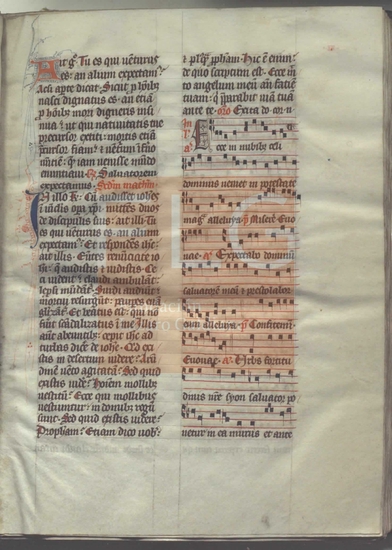 Ait g̃ Tu es qui uenturus
es: an aliũ expectam⁹
Acsi apte dicat Sicut ꝓ hoĩbꝫ
nasci dignatus es: an etiã
ꝓ hoĩbꝫ mori digneris insi
nua: ut qui natiuitatis tue
precursor extiti: mortis etiã
p̃cursor fiam:
nuntiẽ: q̃m iam uenisse
nuntiaui. Saluatorem
expectamus. Scđm matheũ.
In illo t̃: Cũ audisset ioh̃es
ĩ uinclis oꝑa xp̃i: mittẽs duos
de discipulis suis: ait illi: Tu
es qui uenturus es: an aliũ
expectam⁹: Et respondẽs ih̃c
ait illis: Eũtes renũciate io
h̃i: q̃ audistis ⁊ uidistis. Ce
ci uident: claudi ambulãt:
lepsi mũdant̃: Surdi audiũt:
mortui resurgũt: paupes euã
gelizãt̃: Et beatus est: qui nõ
fuit scãdalizatus ĩ me. Illis
aũt abeuntibꝫ: cepit ih̃c ad
turbas dicẽ de ioh̃e. Qđ exi
stis in desertum uidere: Arũ
dinẽ uẽto agitatã: Sed quid
existis uidẽ: Hoĩem mollibꝫ
uestitũ: Ecce qui mollibus
uestiuntur: in domibꝫ regũ
sunt. Sed quid existis uidere:
Prophetam: Etiam dico uob̃:
⁊ plusq̃ ꝓph̃am. Hic ẽ enim
de quo scriptum est. Ecce mi
to angelum meũ añ faciẽ
tuam: q̃ p̃parabit uiã tuã
ante te. Excita do
Ecce in nubibꝫ celi
dominus ueniet in potestate
mag̃ alleluya. Miserẽ Euo
uae. Expectabo dominũ
saluatorẽ meũ ⁊ prestolabor
eum alleluya. Confitemĩ.
Euouae. Urbs fortitu
dinis nr̃e syon saluator po
netur in ea murus et ante